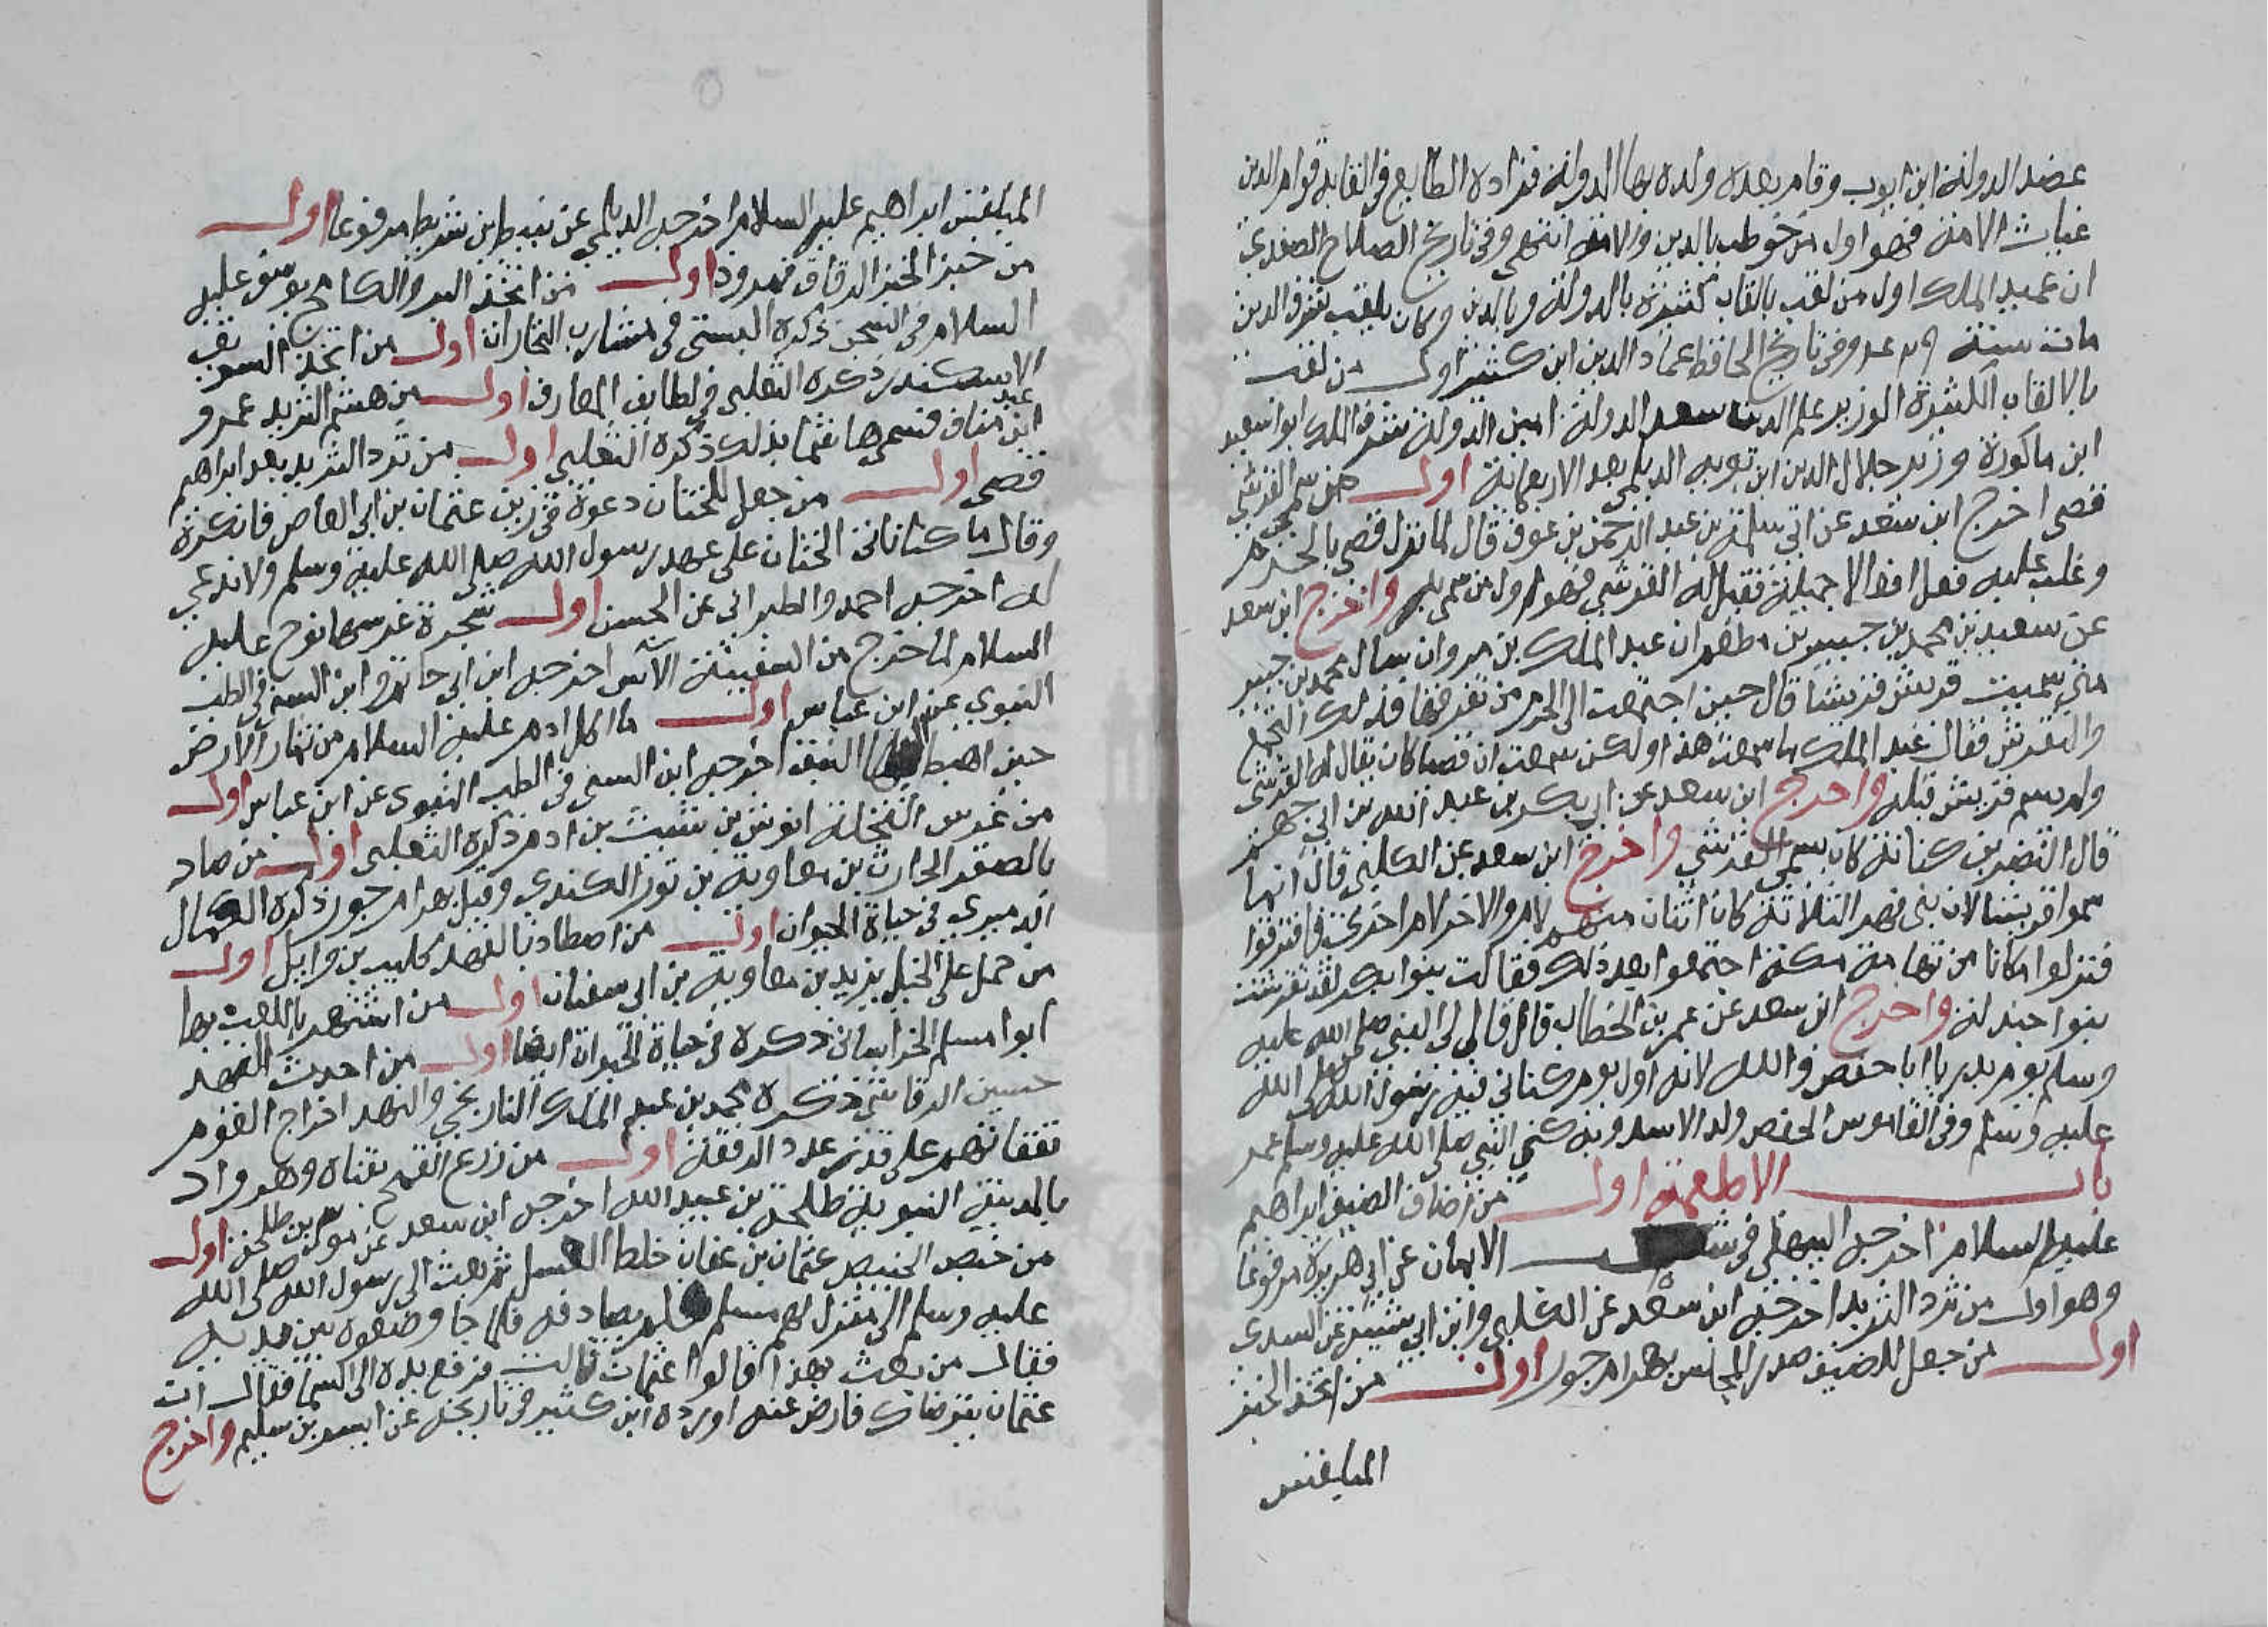 عضد الدولة ابن ابوب وقام بعده ولده بها الدولة فزاده الطايع في القابه قوام الدين
غياث الامة فهو اول من خوطب بالدين والامة انتهى وفى تاريخ الصلاح الصفدي
ان عميد الملك اول من لقب بالقاب كثيرة بالدولة وبالدين وكان يلقب بشرف الدين
مات سنة وفى تاريخ الحافظ عماد الدين ابن كثير اول من لقب
بالالقاب الكثيرة الوزير علم الدين سعد الدولة امين الدولة شرف الملك ابوا سعيد
ابن ماكولة وزير جلال الدين ابن بويه الديلمي بعد الاربعمائة اول من سمى القرشي
قصى اخرج ابن سعد عن ابي سلمة بن عبد الرحمن بن عوف قال لما نزل قصى بالحرم
وغلب عليه فعل افعالا جميلة فقيل له القرشي فهو اول من سمى به واخرج ابن سعد
عن سعيد بن محمد بن جبير بن مطعم ان عبد الملك بن مروان سال محمد بن جبير
متى سميت قريش قريشا قال حين اجتمعت الى الحرم من تفرقها فذلك التجمع
والتقرش فقال عبد الملك ما سمعت هذا ولكن سمعت ان قصيا كان يقال له القرشي
ولم يسم قريش قبله واخرج ابن سعد عن ابى بكر بن عبد الله بن ابي جهم
قال النضر بن كنانة كان يسمى القرشي واخرج ابن سعد عن الكلبى قال انما
سموا قريشا لان بنى فهر الثلاثة كان اثنان منهم لام والاخر لام اخرى فافترقوا
فنزلوا مكانا من تهامة مكة اجتمعوا بعد ذلك فقالت بنوا بكر لقد تقرشت
بنوا جندلة واخرج ابن سعد عن عمر بن الخطاب قال قال لى النبي صلى الله عليه
وسلم يوم بدر يا ابا حفص والله لانه اول يوم كناني فيه رسول الله صلى الله
عليه وسلم وفى القاموس الحفص ولد الاسد وبه كنى النبي صلى الله عليه وسلم عمر
باب الاطعمة اول من اضاف الضيف ابراهيم
عليه السلام اخرجه البيهقي في شعب الايمان عن ابي هريرة مرفوعا
وهو اول من ثرد الثريد اخرجه ابن سعد عن الكلبي وابن ابي شيبة عن السدى
اول من جعل للضيف صدر المجلس بهرام جور اول من اتخذ الخبز
المبلقس
المبلقس ابراهيم عليه السلام اخرجه الديلمي عن نبيط بن شريط مرفوعا اول
من خبز الخبز الرقاق نمرود اول من اتخذ المر والكامخ يوسف عليه
السلام في السجن ذكره البستى في مشارب التجارات اول من اتخذ السويق
الاسكندر ذكره الثعلبى في لطايف المعارف اول من هشم الثريد عمرو
ابن عبد مناف فسمى هاشما بذلك ذكره الثعلبي اول من ثرد الثريد بعد ابراهيم
قصى اول من جعل للختان دعوة في زمن عثمان بن ابى العاص فانكره
وقال ما كنا ناتى الختان على عهد رسول الله صلى الله عليه وسلم ولا ندعى
له اخرجه احمد والطبراني عن الحسن اول شجرة غرسها نوح عليه
السلام لما خرج من السفينة الآس اخرجه ابن ابى حاتم وابن السنى في الطب
النبوي عن ابن عباس اول ما اكل ادم عليه السلام من ثمار الارض
حين اهبط النبق اخرجه ابن السنى في الطب النبوى عن ابن عباس اول
من غرس النخلة انوش بن شيث بن ادم ذكره الثعلبى اول من صاد
بالصقر الحارث بن معاوية بن ثور الكندي وقيل بهرام جور ذكره الكمال
الدميري في حياة الحيوان اول من اصطاد بالفهد كليب بن وايل اول
من حمل على الخيل يزيد بن معاوية بن ابى سفيان اول من اشتهر باللعب بها
ابوا مسلم الخراساني ذكره في حياة الحيوان ايضا اول من احدث النهد
حسين الرقاشي ذكره محمد بن عبد الملك التاريخي والنهد اخراج القوم
نفقاتهم على قدر عدد الرفقة اول من زرع القمح بقناة وهو واد
بالمدينة النبوية طلحة بن عبيد الله اخرجه ابن سعد عن موسى بن طلحة اول
من خبص الخبيص عثمان بن عفان خلط العسل ثم بعث الى رسول الله صلى الله
عليه وسلم الى منزل ام سلمة فلم يصادفه فلما جا وضعوه بين يديه
فقال من بعث بهذا قالوا عثمان قالت فرفع يده الى السما فقال ان
عثمان يترضاك فارض عنه اورده ابن كثير في تاريخه عن ليث بن سليم واخرج